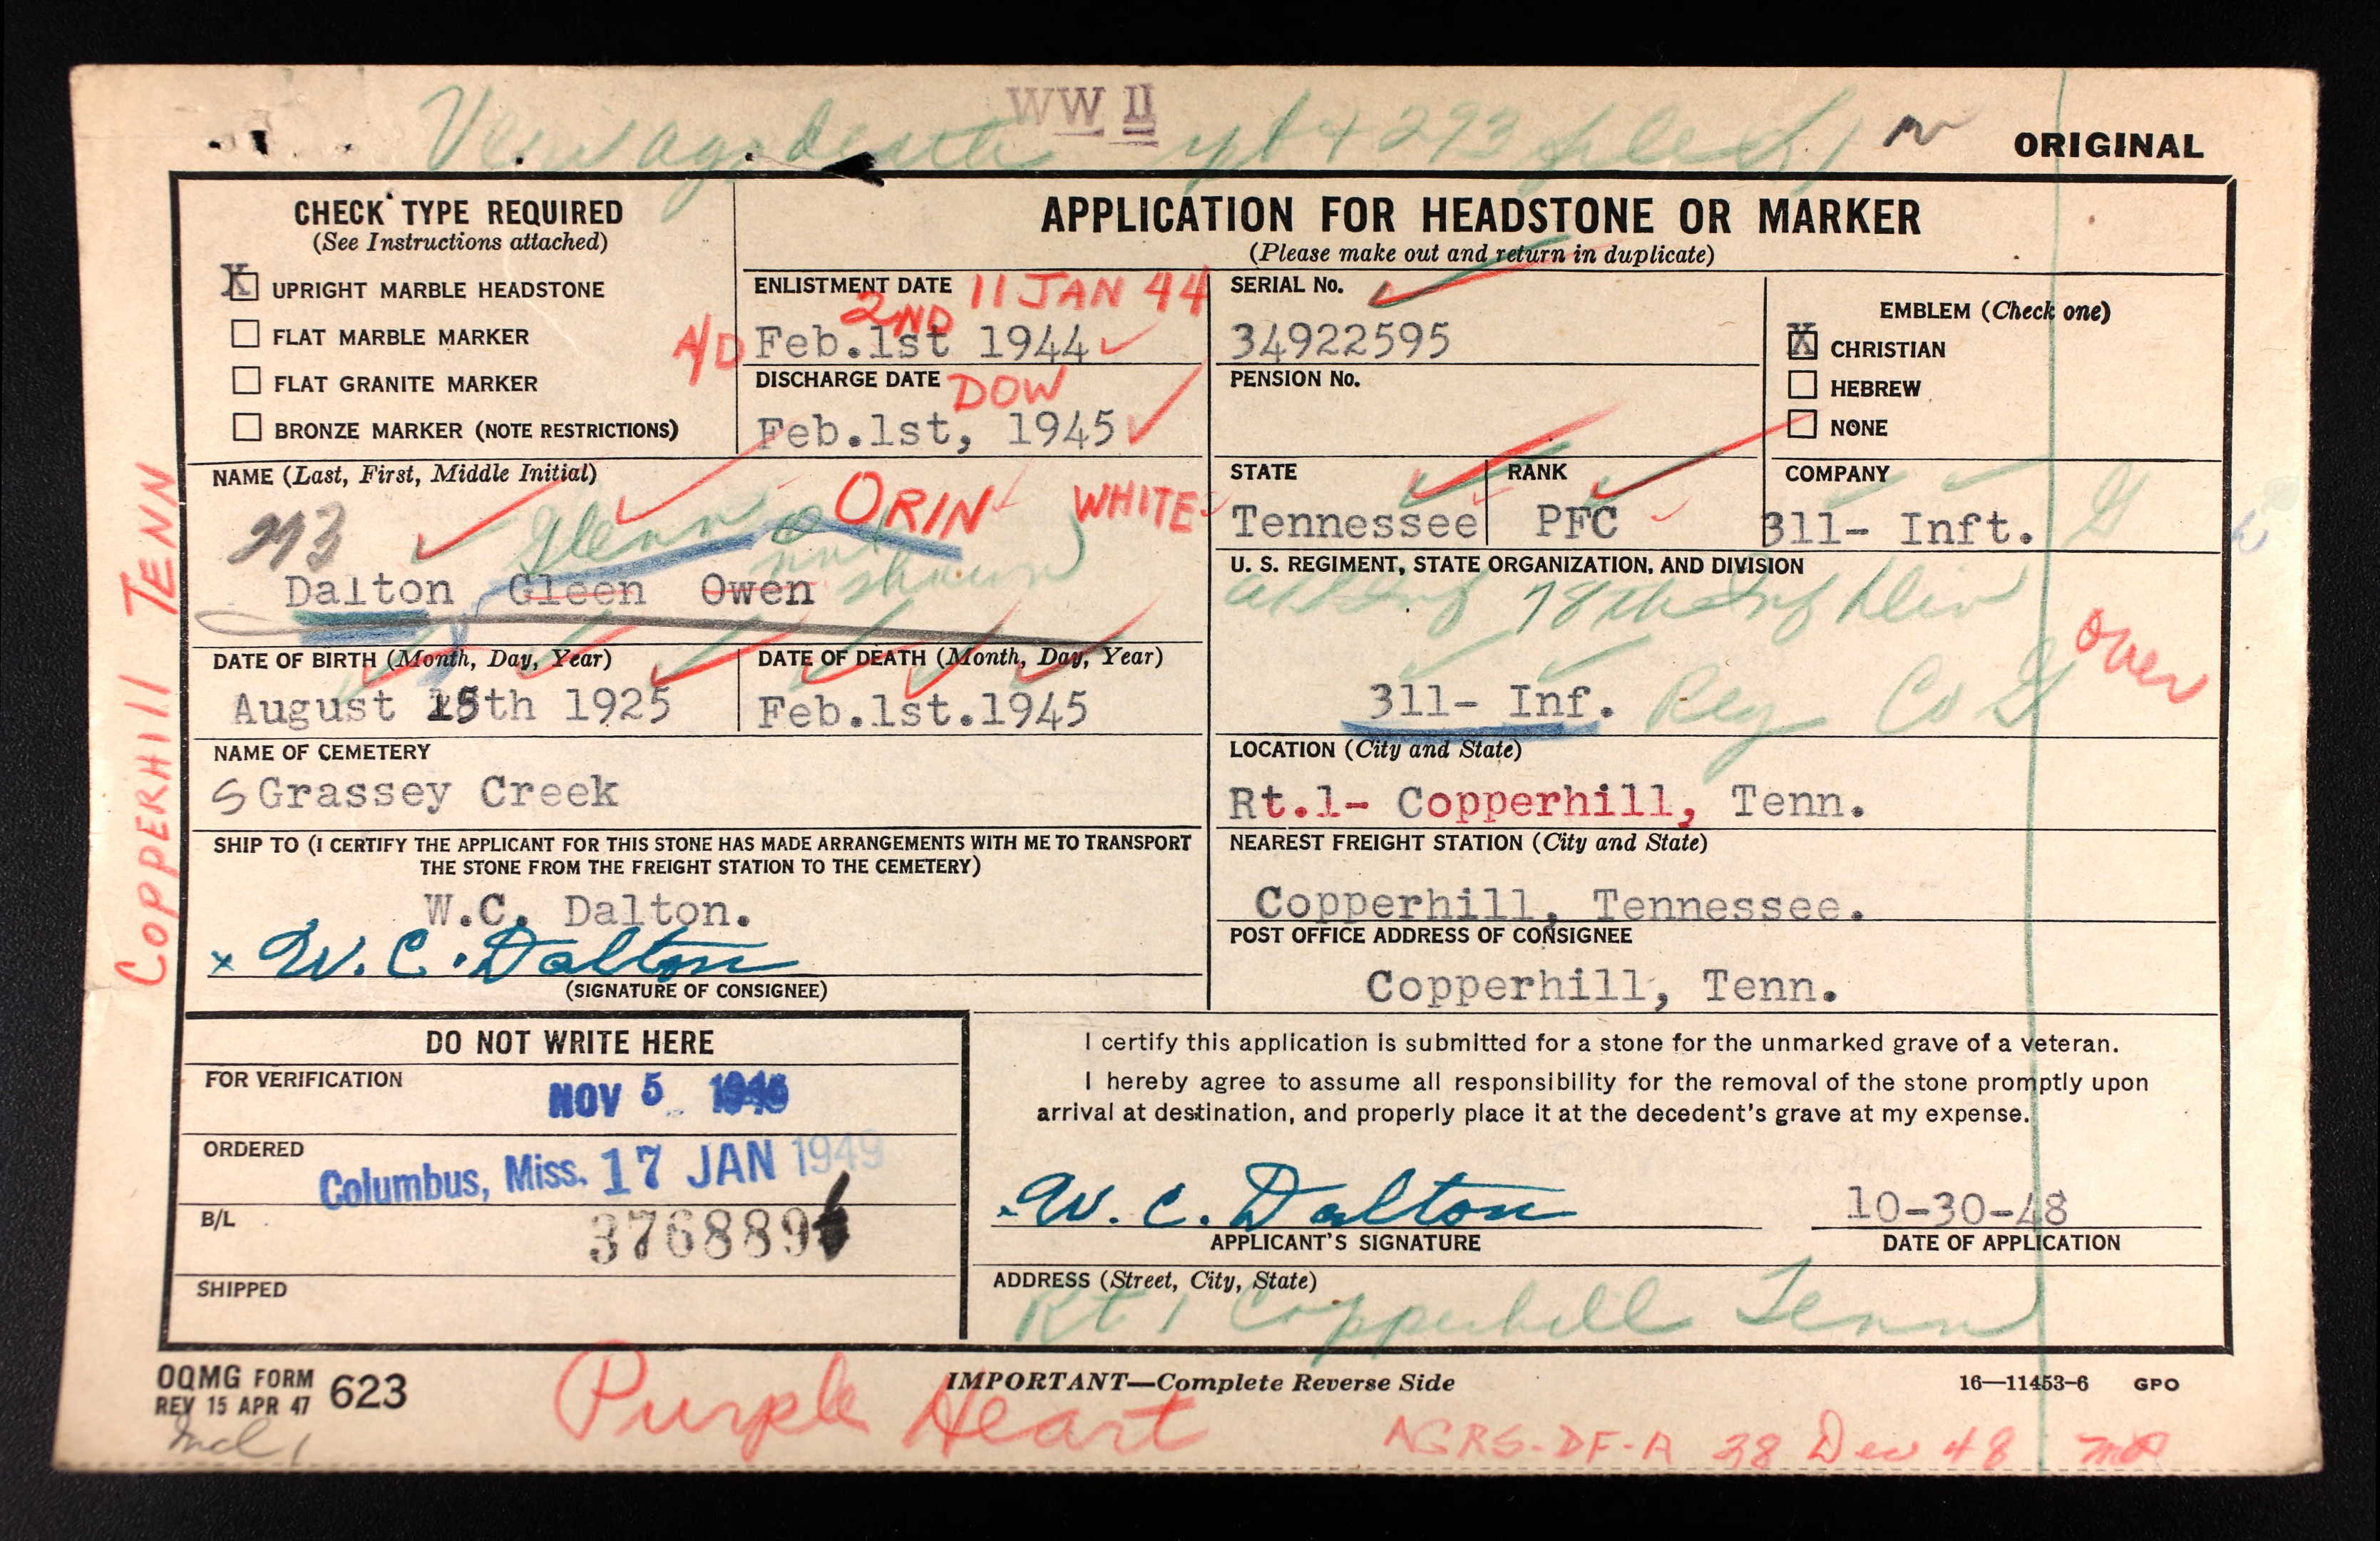 WW II
death
ORIGINAL
CHECK TYPE REQUIRED
(See Instructions attached)
X UPRIGHT MARBLE HEADSTONE
FLAT MARBLE MARKER
FLAT GRANITE MARKER
BRONZE MARKER (NOTE RESTRICTIONS)
APPLICATION FOR HEADSTONE OR MARKER
(Please make out and return in duplicate)
ENLISTMENT DATE 11 JAN 44
2ND
A/D Feb.1st 1944
DISCHARGE DATE DOW
Feb.1st, 1945
SERIAL No.
34922595
PENSION No.
EMBLEM (Check one)
X CHRISTIAN
HEBREW
NONE
NAME (Last, First, Middle Initial)
293 Glenn O ORIN WHITE
not shown
Dalton Gleen Owen
STATE
Tennessee
RANK
PFC
COMPANY
311- Inft. G
U. S. REGIMENT, STATE ORGANIZATION, AND DIVISION
78th Inf Div
311- Inf. Reg Co G
over
DATE OF BIRTH (Month, Day, Year)
August 15th 1925
DATE OF DEATH (Month, Day, Year)
Feb.1st.1945
NAME OF CEMETERY
S Grassey Creek
LOCATION (City and State)
Rt.1- Copperhill, Tenn.
SHIP TO (I CERTIFY THE APPLICANT FOR THIS STONE HAS MADE ARRANGEMENTS WITH ME TO TRANSPORT
THE STONE FROM THE FREIGHT STATION TO THE CEMETERY)
W.C. Dalton.
x W. C. Dalton
(SIGNATURE OF CONSIGNEE)
NEAREST FREIGHT STATION (City and State)
Copperhill, Tennessee.
POST OFFICE ADDRESS OF CONSIGNEE
Copperhill, Tenn.
COPPERHILL TENN
DO NOT WRITE HERE
FOR VERIFICATION
NOV 5
ORDERED
Columbus, Miss. 17 JAN 1949
B/L
3768896
SHIPPED
I certify this application is submitted for a stone for the unmarked grave of a veteran.
I hereby agree to assume all responsibility for the removal of the stone promptly upon
arrival at destination, and properly place it at the decedent's grave at my expense.
W. C. Dalton
APPLICANT'S SIGNATURE
10-30-48
DATE OF APPLICATION
ADDRESS (Street, City, State)
Rt 1 Copperhill Tenn
OQMG FORM 623
REV 15 APR 47
IMPORTANT—Complete Reverse Side
16—11453-6 GPO
Purple Heart
AGRS-DF-A 28 Dec 48